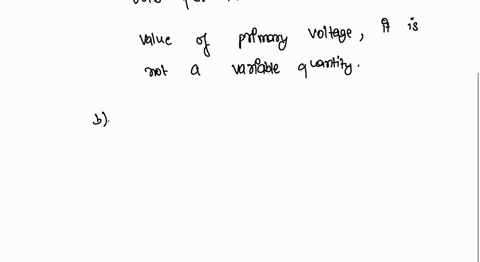 value of primary voltage, it is
not a variable quantity.
b).